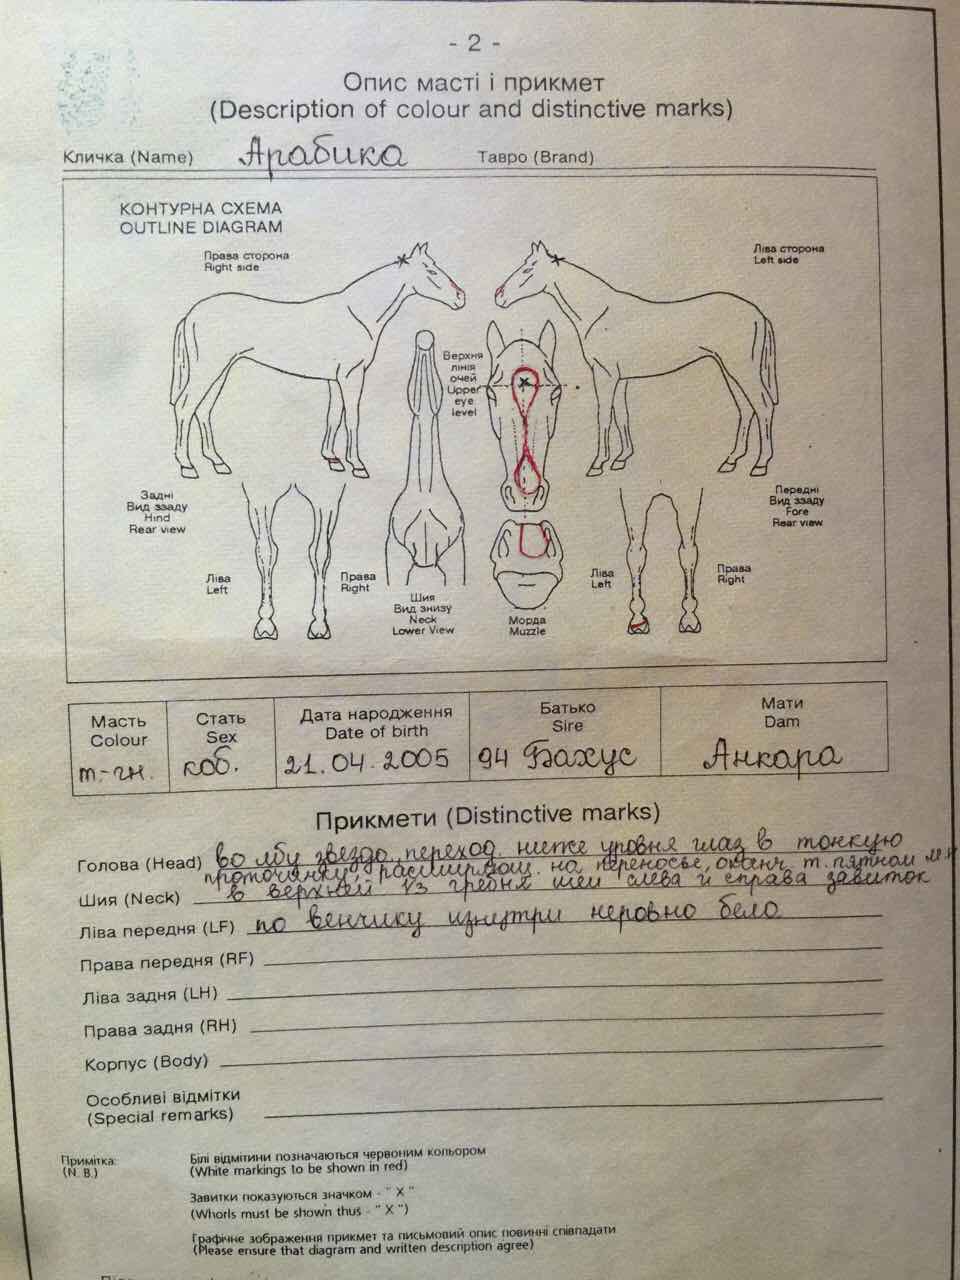 - 2 -
Опис масті і прикмет
(Description of colour and distinctive marks)
Кличка (Name) Арабика Тавро (Brand)
КОНТУРНА СХЕМА
OUTLINE DIAGRAM
Права сторона
Right side
Ліва сторона
Left side
Верхня
лінія
очей
Upper
eye
level
Задні
Вид ззаду
Hind
Rear view
Передні
Вид ззаду
Fore
Rear view
Ліва
Left
Права
Right
Шия
Вид знизу
Neck
Lower View
Морда
Muzzle
Ліва
Left
Права
Right
Масть
Colour
Стать
Sex
Дата народження
Date of birth
Батько
Sire
Мати
Dam
т.-гн. коб. 21.04.2005 94 Бахус Анкара
Прикмети (Distinctive marks)
Голова (Head) во лбу звезда, переход. ниже уровня глаз в тонкую
проточину, расширяющ. на переносье, оканч. т. пятном м.н
Шия (Neck) в верхней 1/3 гребня шеи слева и справа завиток
Ліва передня (LF) по венчику изнутри неровно бело
Права передня (RF)
Ліва задня (LH)
Права задня (RH)
Корпус (Body)
Особливі відмітки
(Special remarks)
Примітка:
(N. B.)
Білі відмітини позначаються червоним кольором
(White markings to be shown in red)
Завитки показуються значком - " X "
(Whorls must be shown thus - " X ")
Графічне зображення прикмет та письмовий опис повинні співпадати
(Please ensure that diagram and written description agree)